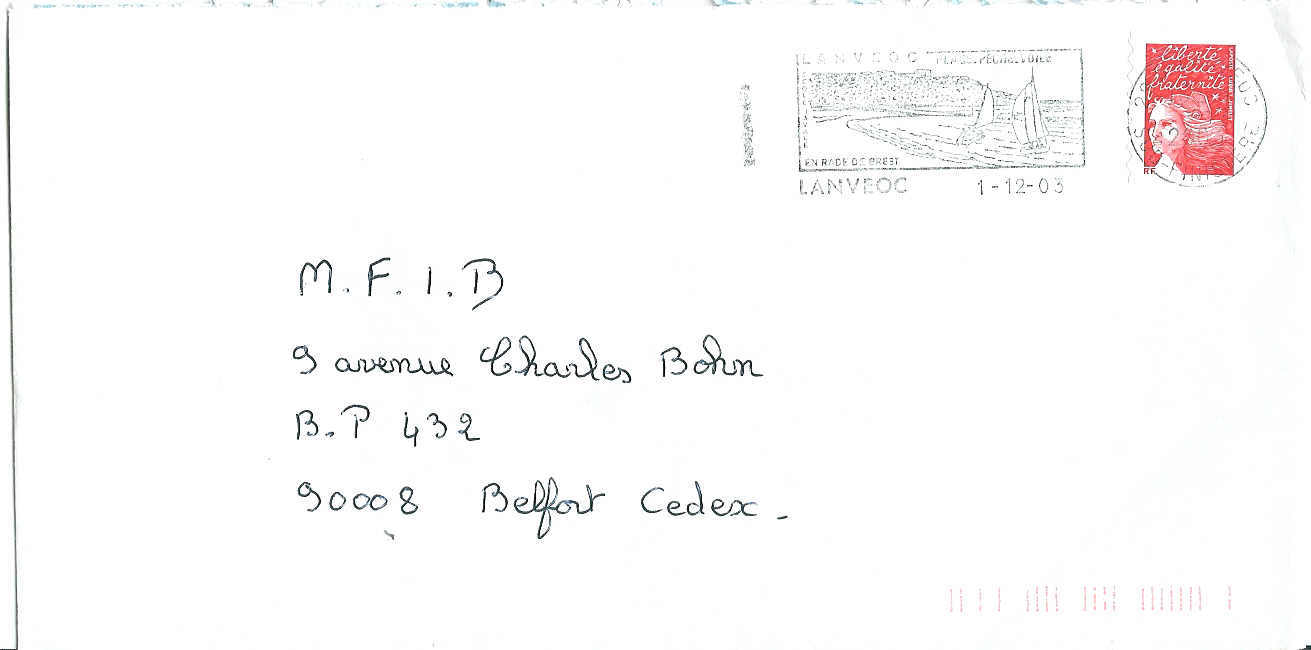 LANVEOC PLAGE. PECHE. VOILE
EN RADE DE BREST
LANVEOC 1-12-03
liberté
égalité
fraternité
RF
M. F. I. B
9 avenue Charles Bohn
B.P 432
90008 Belfort Cedex -